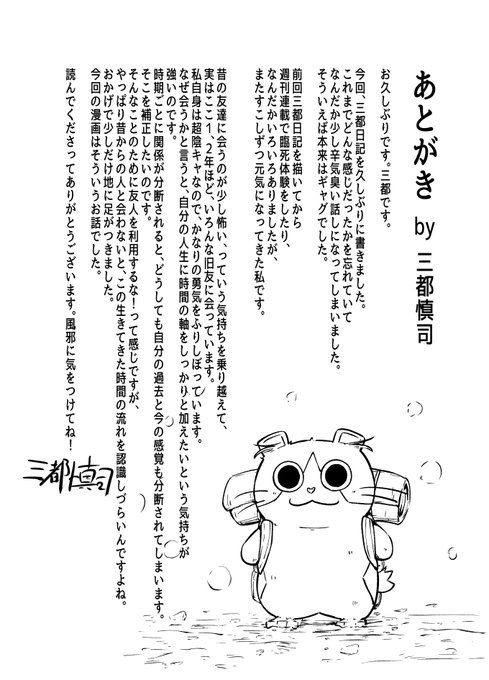 あとがき by 三都慎司
お久しぶりです。三都です。
今回、三都日記を久しぶりに書きました。
これまでどんな感じだったかを忘れていて
なんだか少し辛気臭い話しになってしまいました。
そういえば本来はギャグでした。
前回三都日記を描いてから
週刊連載で臨死体験をしたり、
なんだかいろいろありましたが、
またすこしずつ元気になってきた私です。
昔の友達に会うのが少し怖い、っていう気持ちを乗り越えて、
実はここ1、2年ほど、いろんな旧友に会っています。
私自身は超陰キャなので、かなりの勇気をふりしぼっています。
なぜ会うかと言うと、自分の人生に時間の軸をしっかりと加えたいという気持ちが
強いのです。
時期ごとに関係が分断されると、どうしても自分の過去と今の感覚も分断されてしまいます。
そこを補正したいのです。
そんなことのために友人を利用するな！って感じですが、
やっぱり昔からの人と会わないと、この生きてきた時間の流れを認識しづらいんですよね。
おかげで少しだけ地に足がつきました。
今回の漫画はそういうお話でした。
読んでくださってありがとうございます。風邪に気をつけてね！
三都慎司